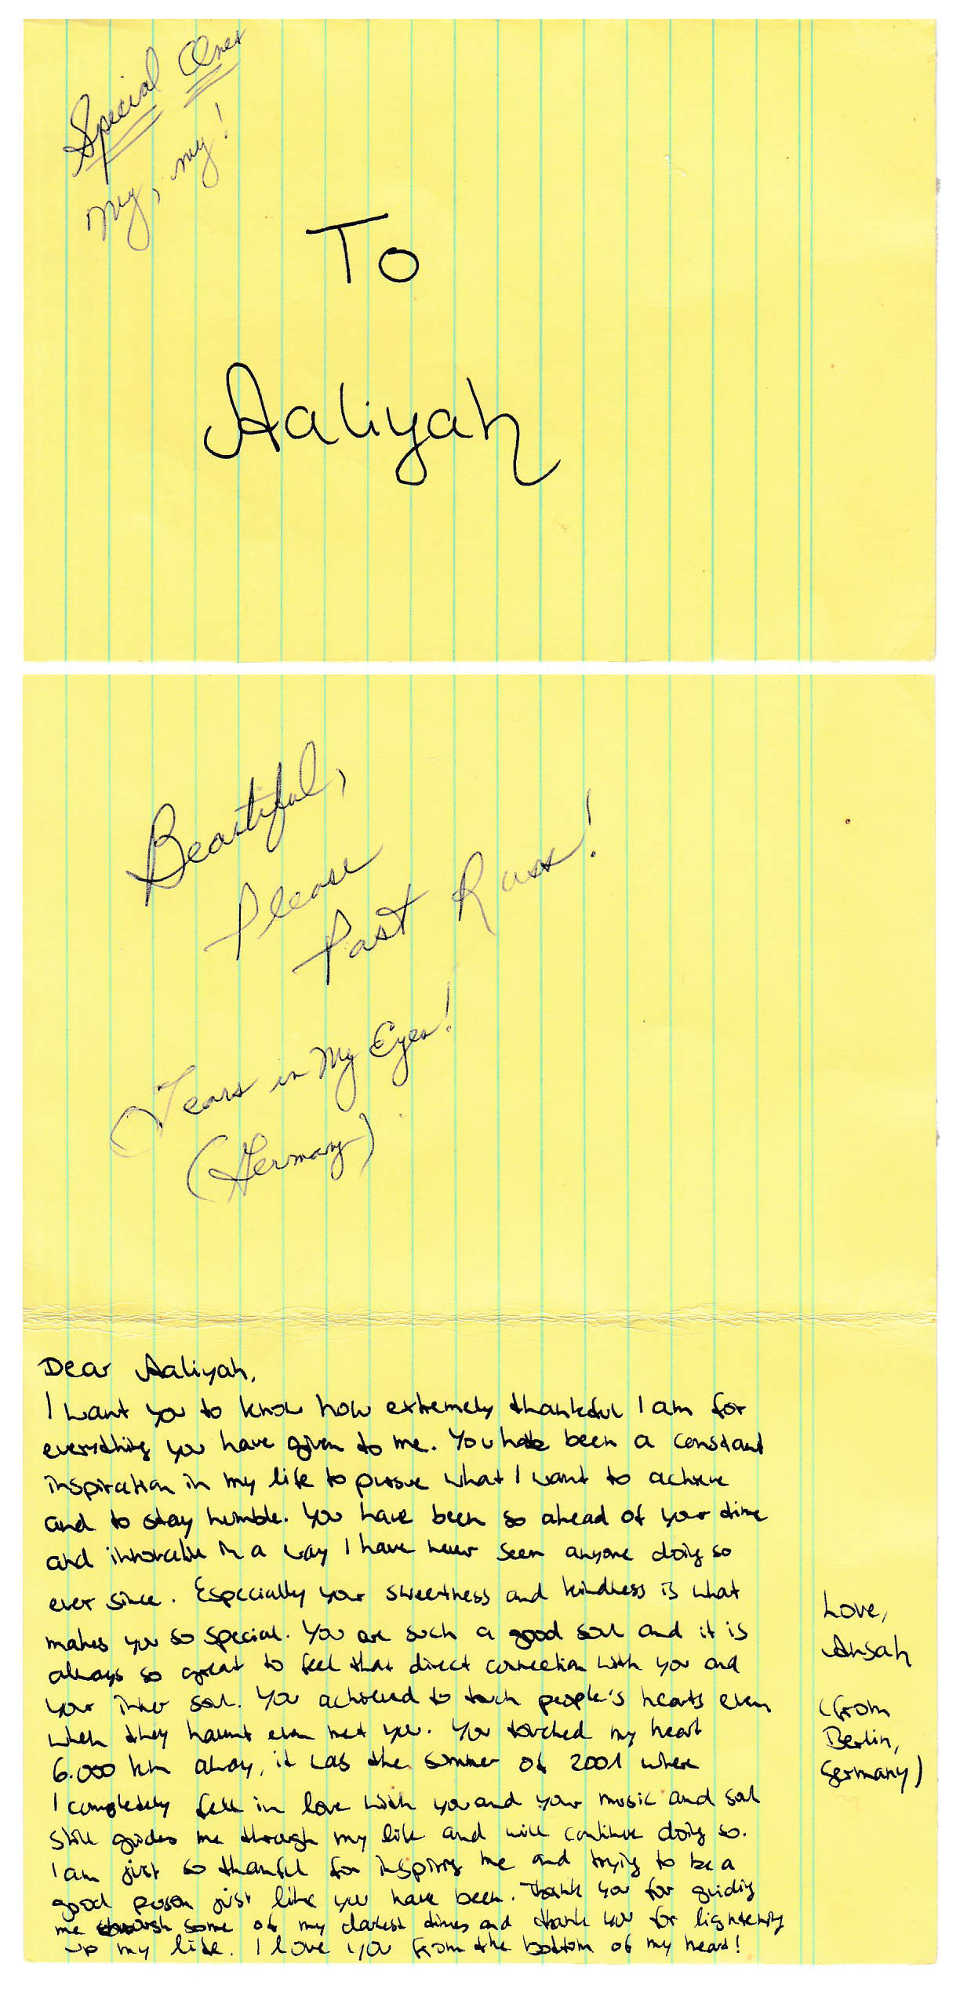 Special Ones
My, my!
To
Aaliyah
Beautiful,
Please
Past Russ!
Tears in My Eyes!
(Germany)
Dear Aaliyah,
I want you to know how extremely thankful I am for
everything you have given to me. You have been a constant
inspiration in my life to pursue what I want to achieve
and to stay humble. You have been so ahead of your time
and innovative in a way I have never seen anyone doing so
ever since. Especially your sweetness and kindness is what
makes you so special. You are such a good soul and it is
always so great to feel that direct connection with you and
your inner soul. You achieved to touch people's hearts even
when they haven't even met you. You touched my heart
6.000 km away, it was the summer of 2001 where
I completely fell in love with you and your music and soul
still guides me through my life and will continue doing so.
I am just so thankful for inspiring me and trying to be a
good person just like you have been. Thank you for guiding
me some of my darkest times and thank you for lightening
up my life. I love you from the bottom of my heart!
Love,
Ansah
(from
Berlin,
Germany)